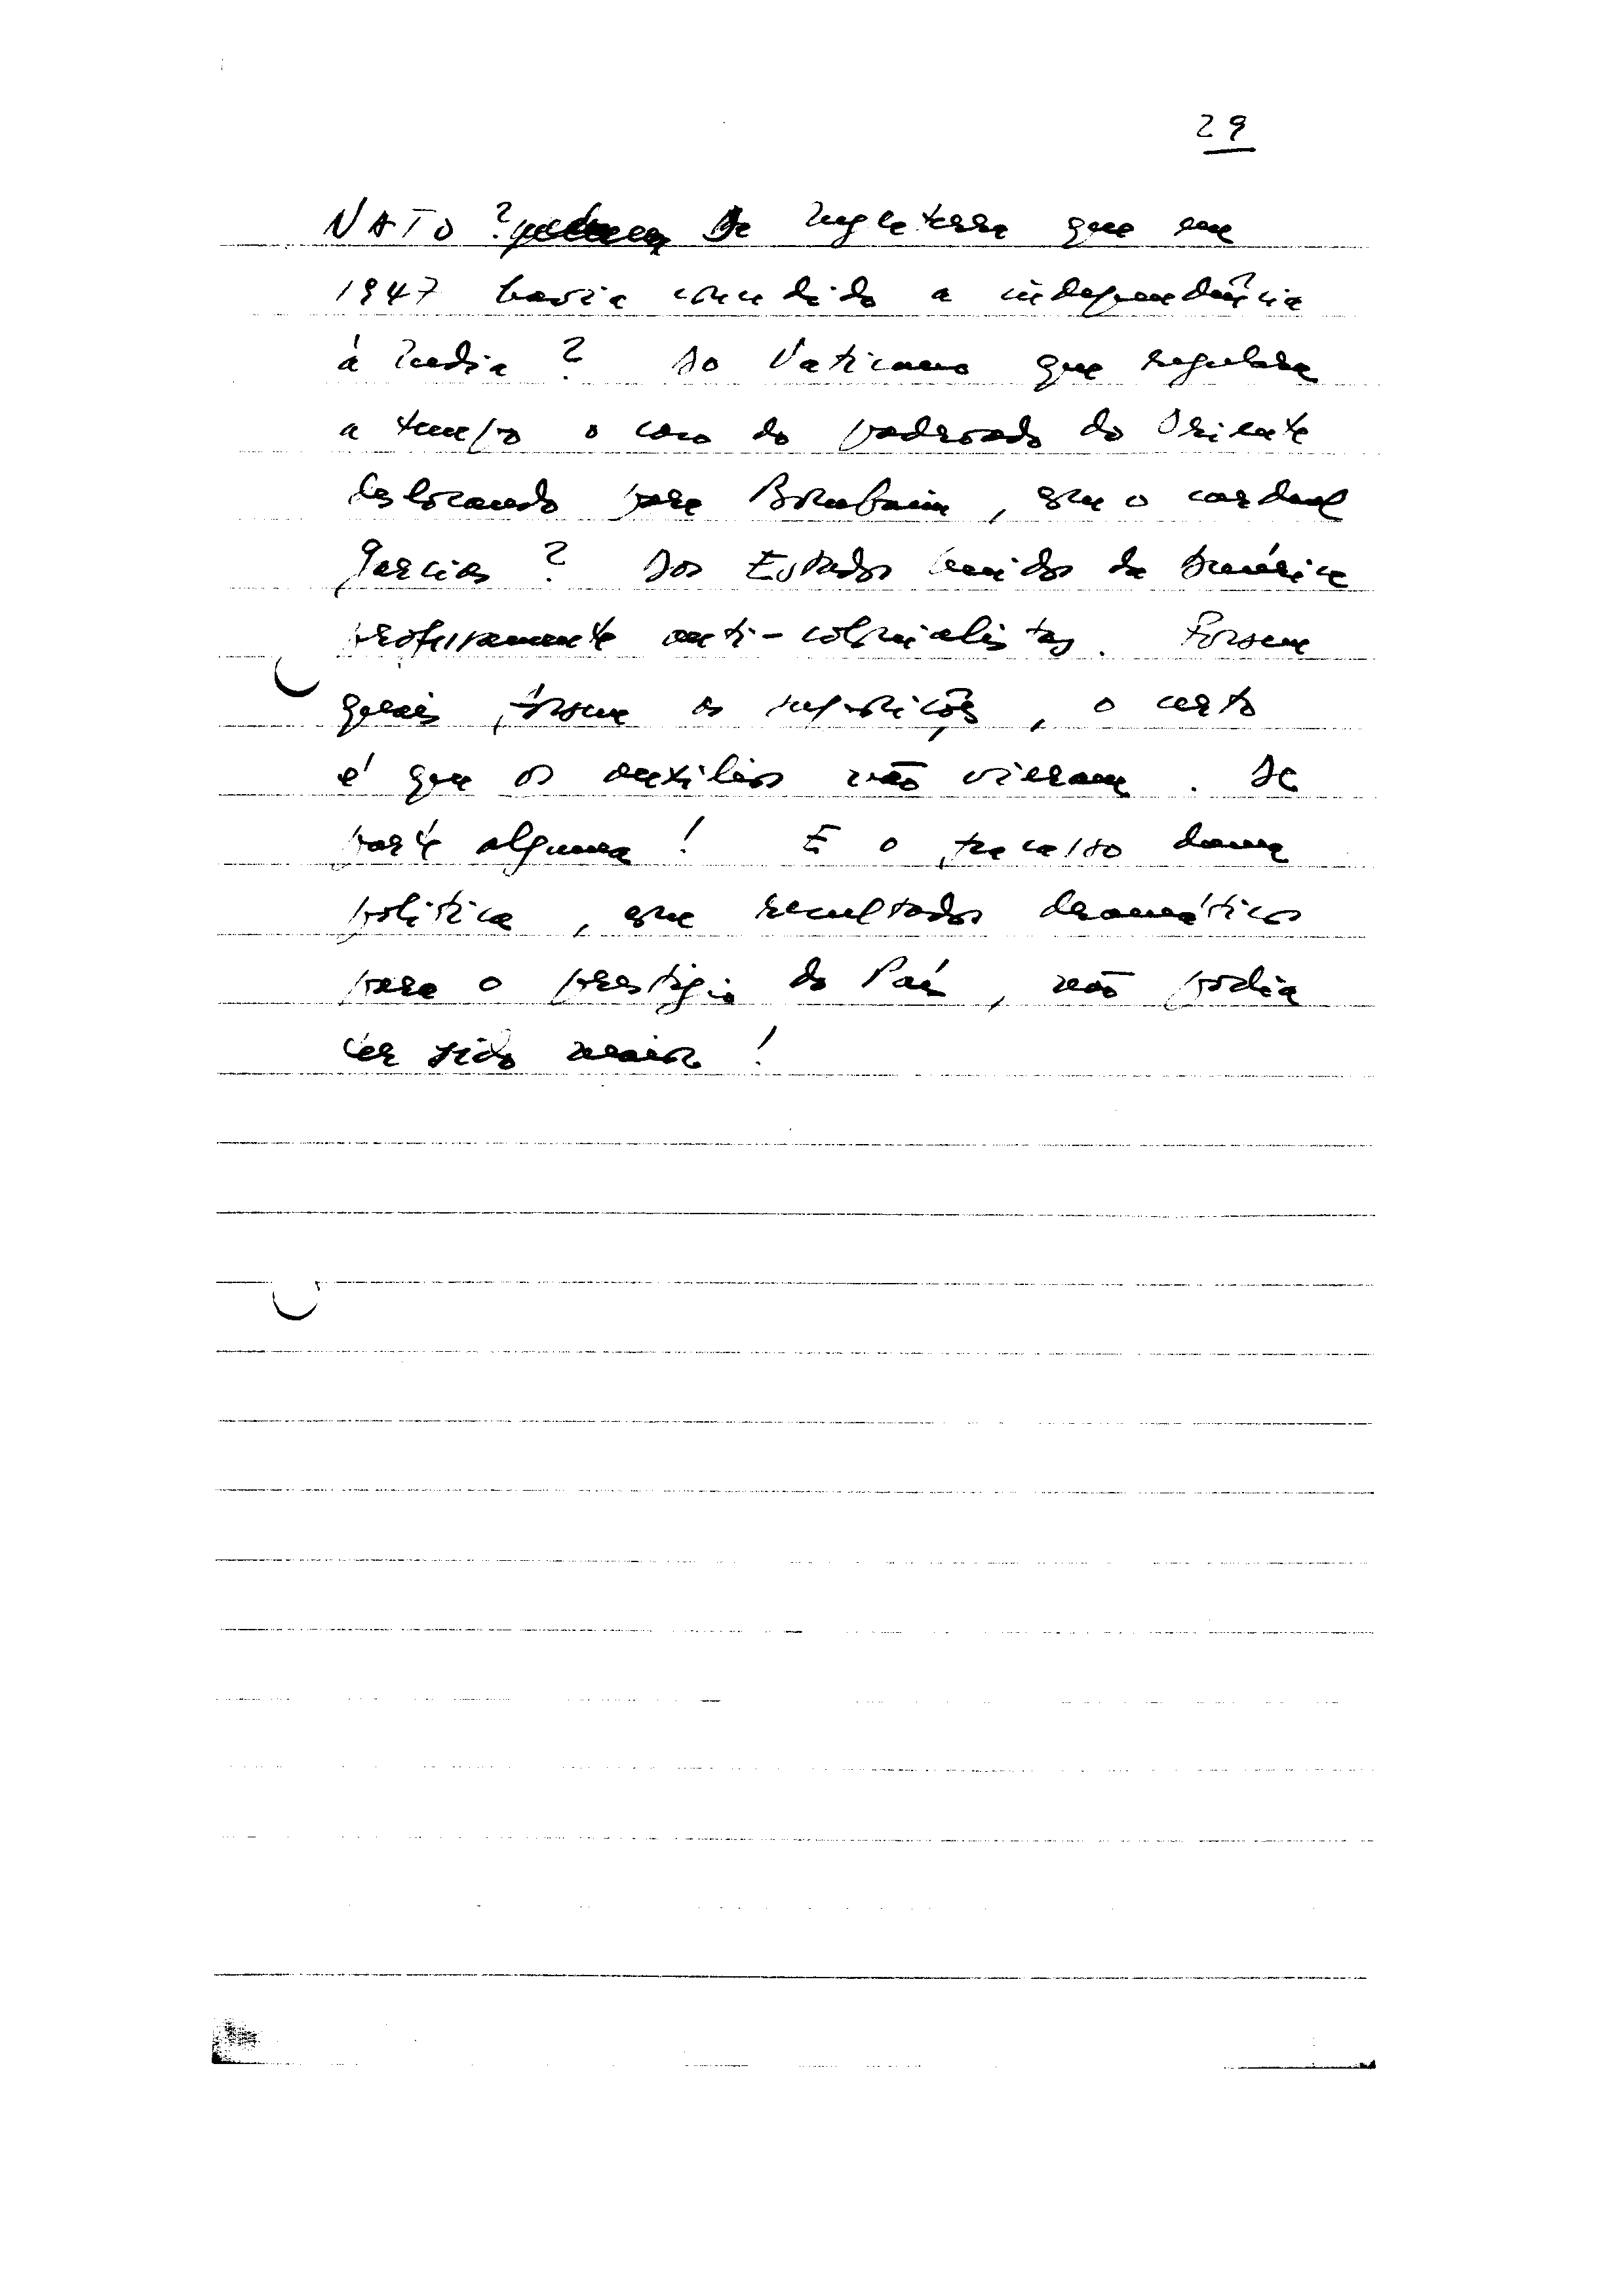 29
NATO ? Da Inglaterra que em
1947 havia concedido a independência
à India ? Do Vaticano que regulara
a tempo o caso do padroado do Oriente
deslocando para Bombaim, que o cardeal
Gracias ? Dos Estados Unidos da América
anti-colonialistas. Fossem
quais fossem as suposições, o certo
é que os auxílios não vieram. De
parte alguma ! E o fracasso duma
politica, que resultados dramáticos
para o prestígio do País, não podia
ter sido maior !